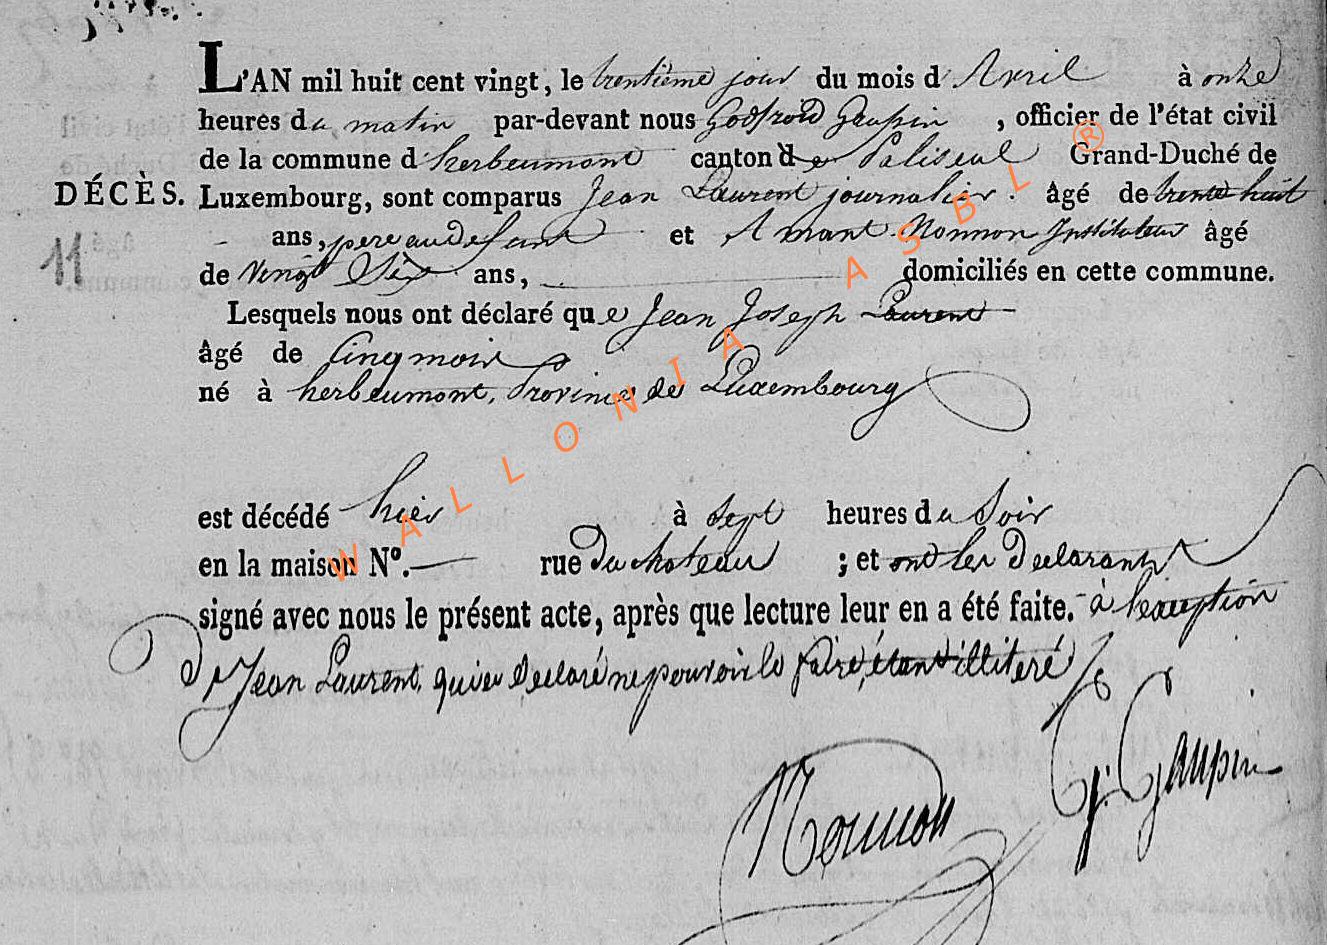 L'AN mil huit cent vingt, le trentième jour du mois d'Avril à onze
heures du matin par-devant nous Godfroid Gaupin, officier de l'état civil
de la commune d'herbeumont canton de Paliseul Grand-Duché de
DÉCÈS. Luxembourg, sont comparus Jean Laurent journalier. âgé de trente huit
11 ans, pere au défunt et Amant Nonnon Instituteur âgé
de Vingt Six ans, domiciliés en cette commune.
Lesquels nous ont déclaré que Jean Joseph Laurent
âgé de Cinq mois
né à herbeumont, Province de Luxembourg
est décédé hier à Sept heures du Soir
en la maison N°. — rue du chateau ; et ont les Declarants
signé avec nous le présent acte, après que lecture leur en a été faite. à l'exception
de Jean Laurent, qui a Declaré ne pouvoir le faire, étant illiteré
G: Gaupin
Nonnon
WALLONIA ASBL®